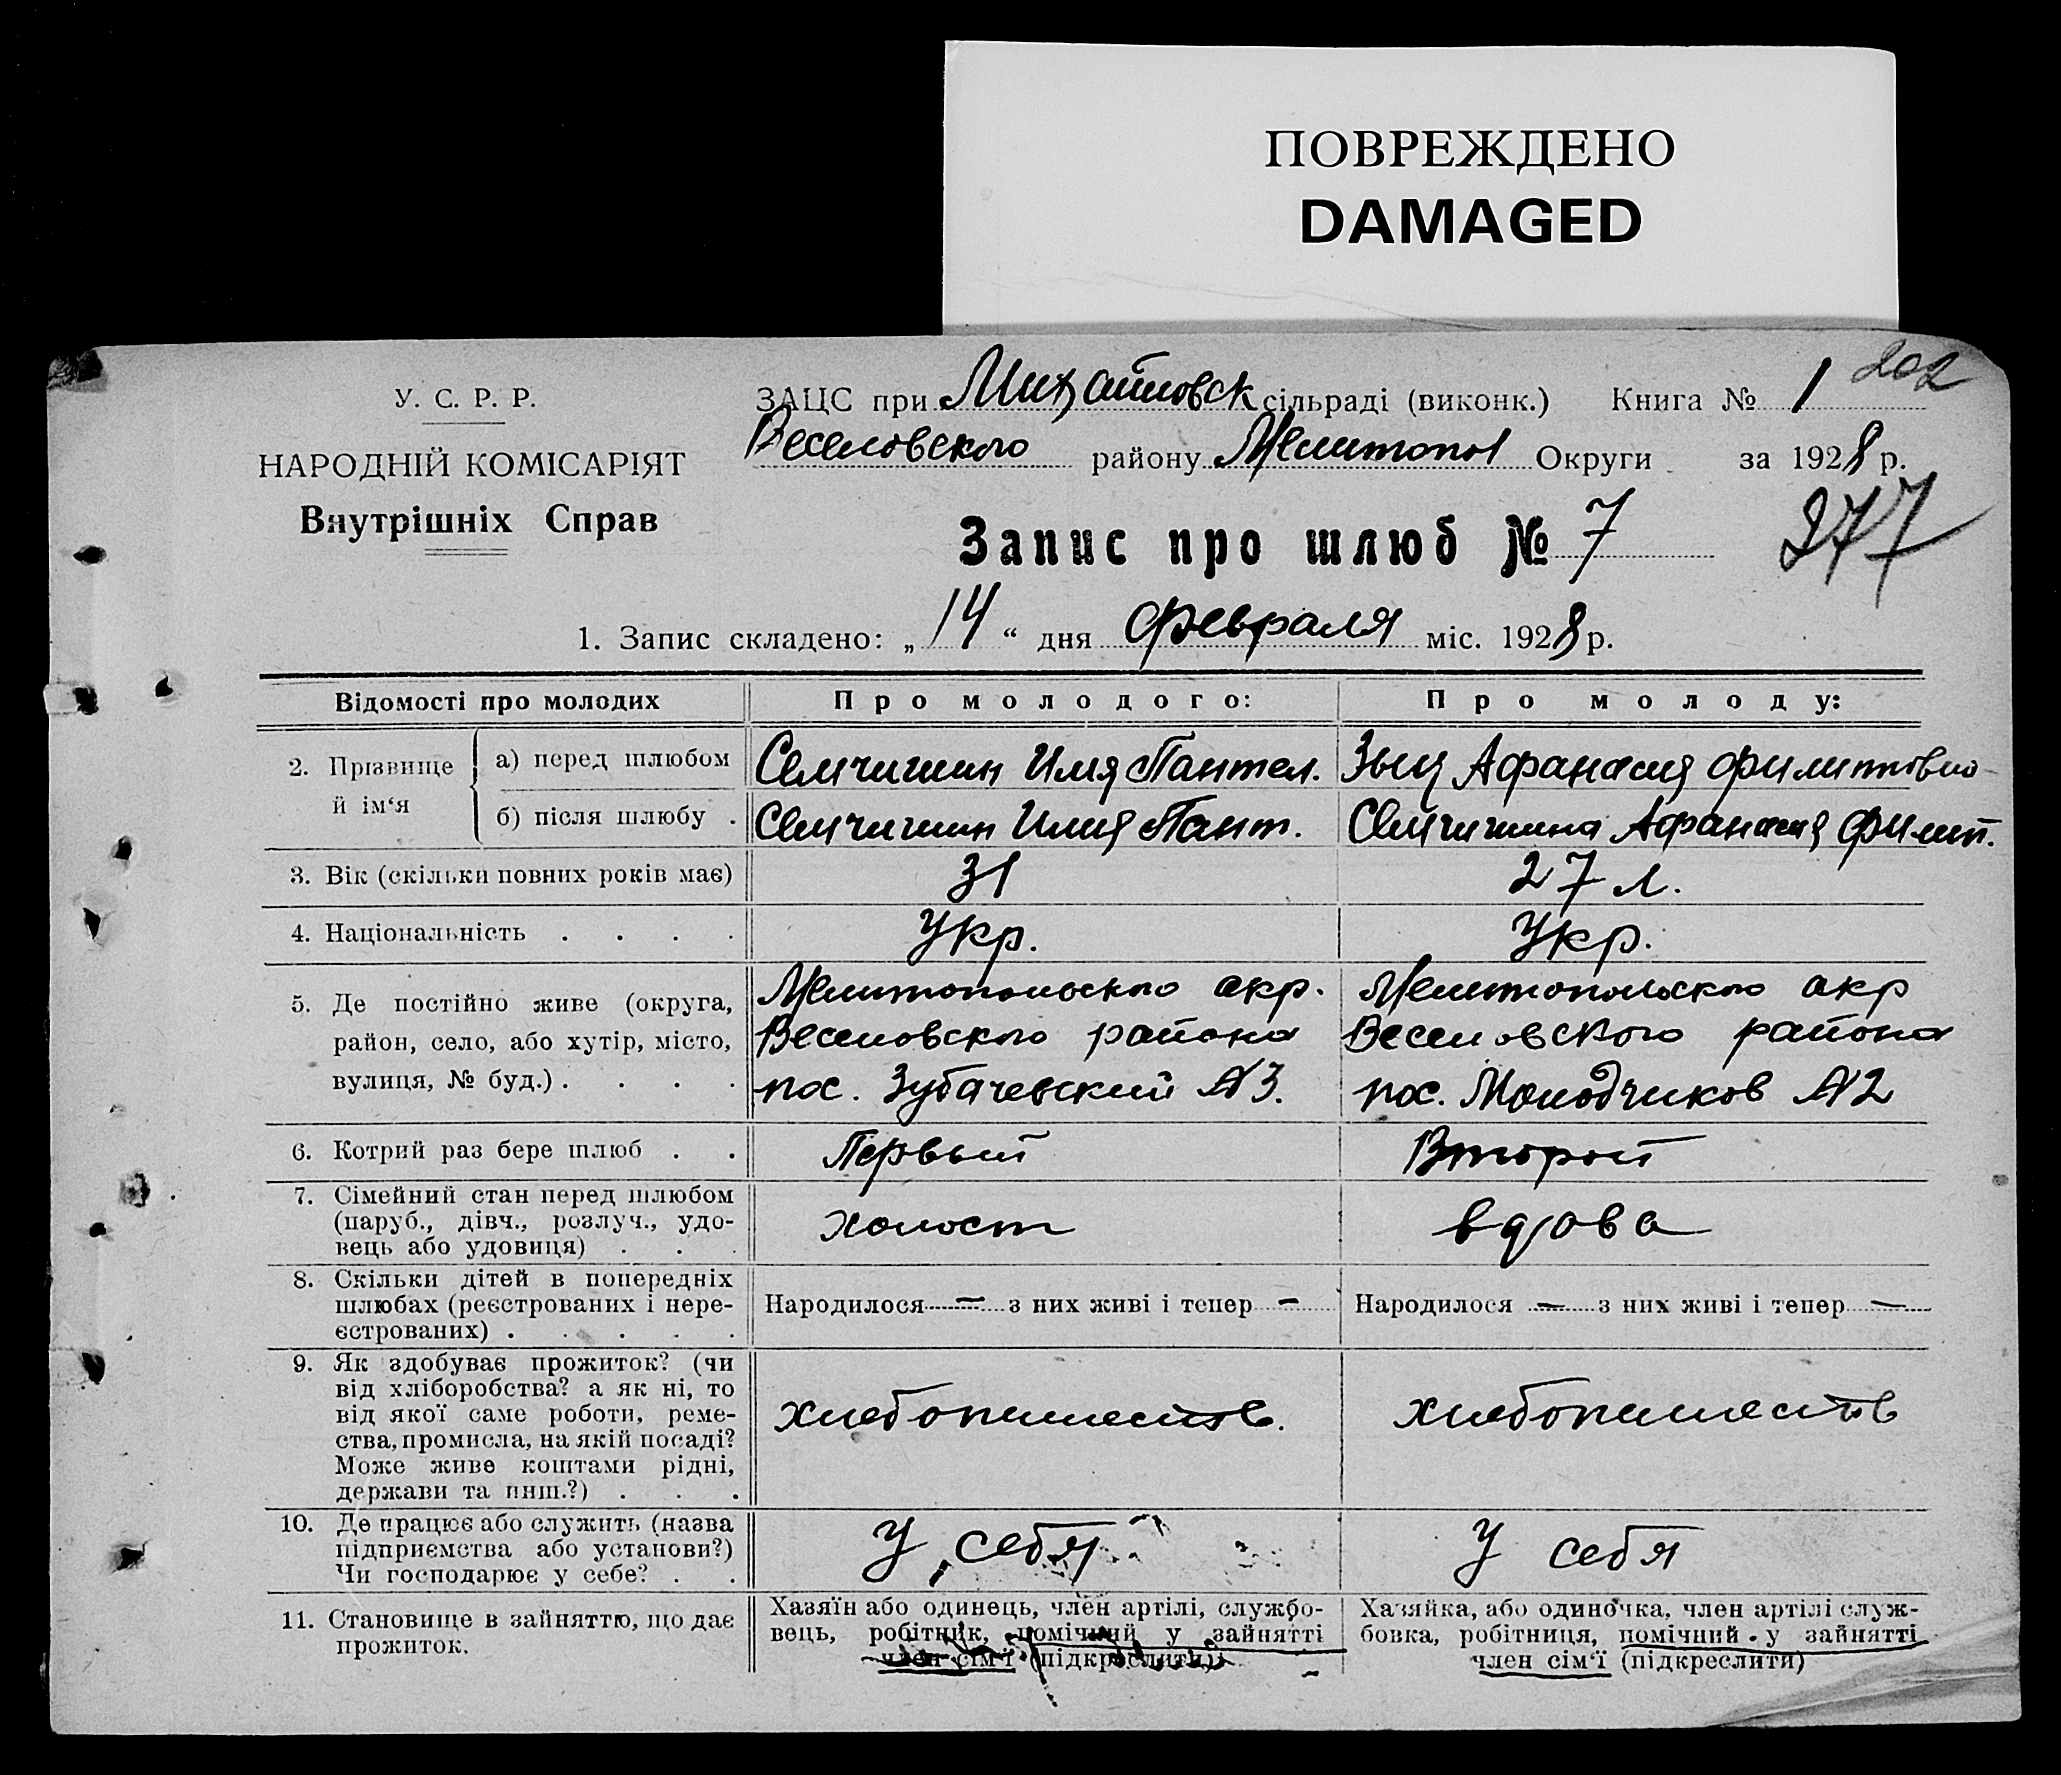 ПОВРЕЖДЕНО
DAMAGED
202
У. С. Р. Р.
НАРОДНІЙ КОМІСАРІЯТ
Внутрішніх Справ
ЗАЦС при Михайловск сільраді (виконк.) Книга № 1
Веселовского району Мелитопол Округи за 1928 р.
Запис про шлюб № 7
277
1. Запис складено: „14“ дня февраля міс. 1928 р.
Відомості про молодих
Про молодого:
Про молоду:
2. Прізвище й ім‘я
а) перед шлюбом
Семчишин Илия Пантел.
Зыц Афанасия Филиповна
б) після шлюбу .
Семчишин Илия Пант.
Семчишина Афанасия Филип.
3. Вік (скільки повних років має)
31
27 л.
4. Національність . . . .
Укр.
Укр.
5. Де постійно живе (округа,
район, село, або хутір, місто,
вулиця, № буд.) . . . .
Мелитопольского окр.
Веселовского района
пос. Зубачевский №3.
Мелитопольского окр
Веселовского района
пос. Молодчиков №2
6. Котрий раз бере шлюб . .
Первый
Второй
7. Сімейний стан перед шлюбом
(паруб., дівч., розлуч., удо-
вець або удовиця) . . .
холост
вдова
8. Скільки дітей в попередніх
шлюбах (реєстрованих і нере-
єстрованих) . . . . .
Народилося — з них живі і тепер —
Народилося — з них живі і тепер —
9. Як здобуває прожиток? (чи
від хліборобства? а як ні, то
від якої саме роботи, реме-
ства, промисла, на якій посаді?
Може живе коштами рідні,
держави та инш.?) . . .
хлебопашеств.
хлебопашеств
10. Де працює або служить (назва
підприємства або установи?)
Чи господарює у себе? . .
У себя
У себя
11. Становище в зайняттю, що дає
прожиток.
Хазяїн або одинець, член артілі, службо-
вець, робітник, помічний у зайнятті
член сім‘ї (підкреслити)
Хазяйка, або одиночка, член артілі служ-
бовка, робітниця, помічний у зайнятті
член сім‘ї (підкреслити)